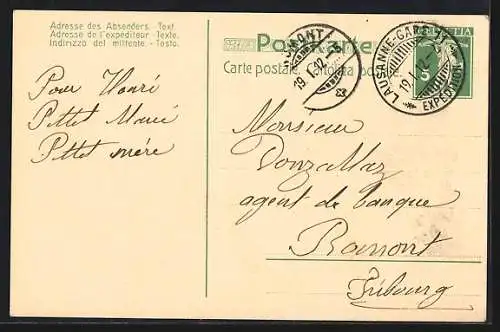 Adresse des Absenders. - Text.
Adresse de l'expéditeur. - Texte.
Indirizzo del mittente. - Testo.
Postkarte
Carte postale. Cartolina postale.
ROMONT
19.I.12.
LAUSANNE-GARE
19.I.12
EXPEDITION
HELVETIA
5
Pour Henri
Pittet Marie
Pittet mère
Monsieur
agent de banque
Romont
Fribourg